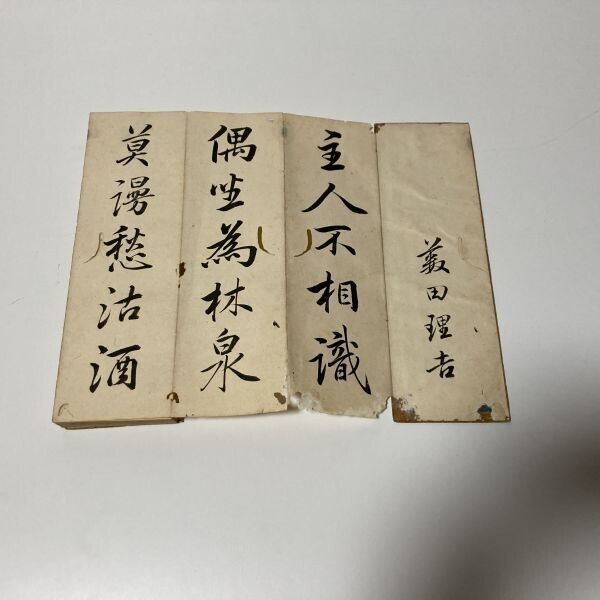 薮田理吉
主人不相識
偶坐為林泉
莫謾愁沽酒